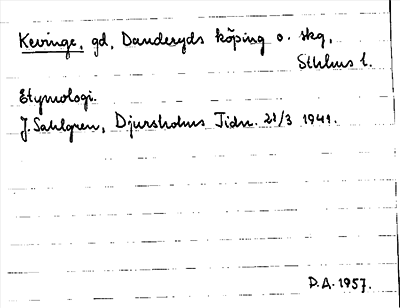 Kevinge, gd, Danderyds köping o. skg,
Sthlms l.
Etymologi.
J. Sahlgren, Djursholms Tidn. 21/3 1941.
D.A. 1957.